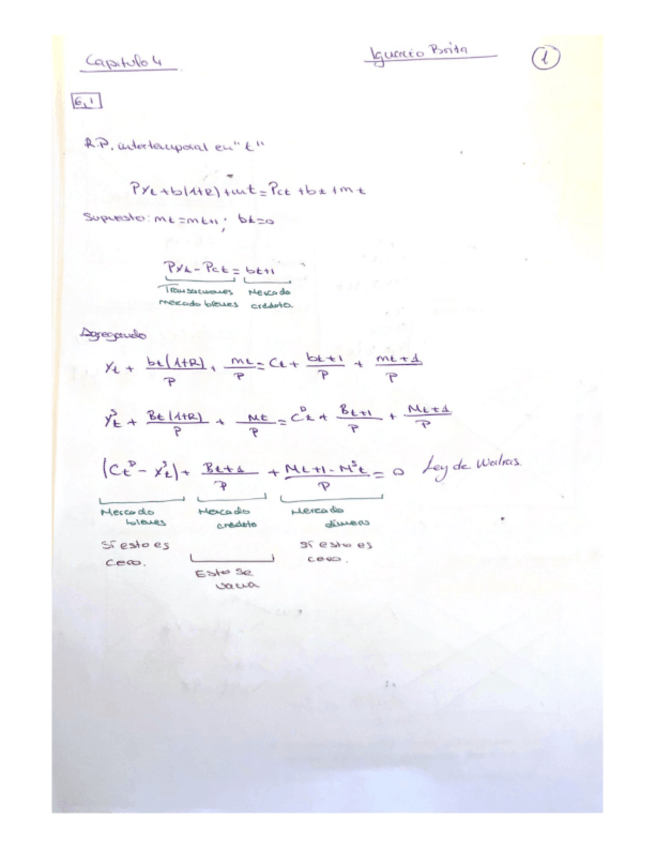 Capitulo 4
Ignacio Brita
1
6,1
R.P. intertemporal en "t"
Pyt + b(1+R) + mt = Pct + bt + mt
Supuesto: mt = mt+1 ; bt=0
Pyt - Pct = bt+1
Transacciones Mercado
mercado bienes crédito
Agregando
yt + bt(1+R)/P + mt/P = Ct + bt+1/P + mt+1/P
y^s t + Bt(1+R)/P + Mt/P = C^D t + Bt+1/P + Mt+1/P
(Ct^D - y^s t) + Bt+1/P + Mt+1 - M^s t/P = 0 Ley de Walras.
Mercado Mercado Mercado
bienes crédito dinero
Si esto es Si esto es
cero. cero.
Esto se
vacia